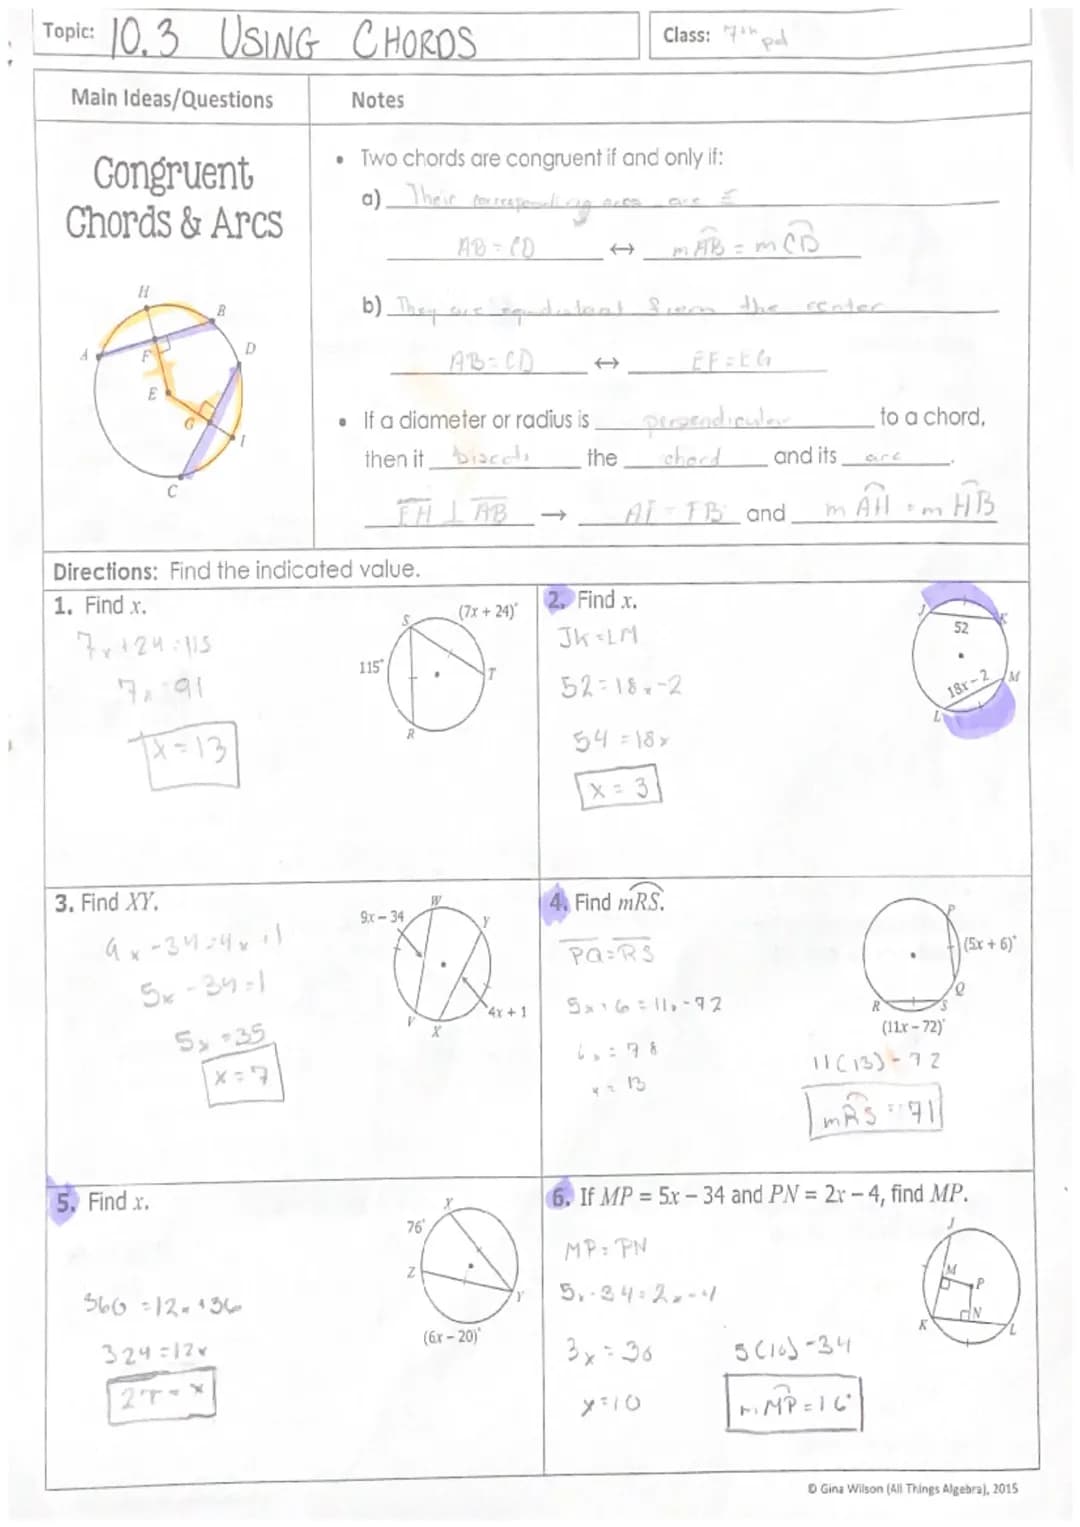 Topic: 10.3 USING CHORDS
Class: 7th pd
Main Ideas/Questions
Notes
Congruent
Chords & Arcs
H
B
A
F
D
E
G
I
C
• Two chords are congruent if and only if:
a) Their corresponding arcs are ≅
AB = CD ↔ mAB = mCD
b) They are equidistant from the center
AB = CD ↔ EF = EG
• If a diameter or radius is perpendicular to a chord,
then it bisects the chord and its arc.
EH ⊥ AB → AF = FB and mAH = mHB
Directions: Find the indicated value.
1. Find x.
7x + 24 = 115
7x = 91
x = 13
S
(7x + 24)°
115°
T
R
2. Find x.
JK = LM
52 = 18x - 2
54 = 18x
x = 3
J
K
52
18x – 2
M
L
3. Find XY.
9x - 34 = 4x + 1
5x - 34 = 1
5x = 35
x = 7
9x – 34
W
Y
V
X
4x + 1
4. Find mRS.
PQ = RS
5x + 6 = 11x - 72
6x = 78
x = 13
P
(5x + 6)°
Q
R
S
(11x – 72)°
11(13) - 72
mRS = 71
5. Find x.
360 = 12x + 36
324 = 12x
27 = x
X
76°
Z
Y
(6x – 20)°
6. If MP = 5x – 34 and PN = 2x – 4, find MP.
MP = PN
5x - 34 = 2x - 4
3x = 30
x = 10
5(10) - 34
mMP = 16°
J
M
P
N
K
L
© Gina Wilson (All Things Algebra), 2015